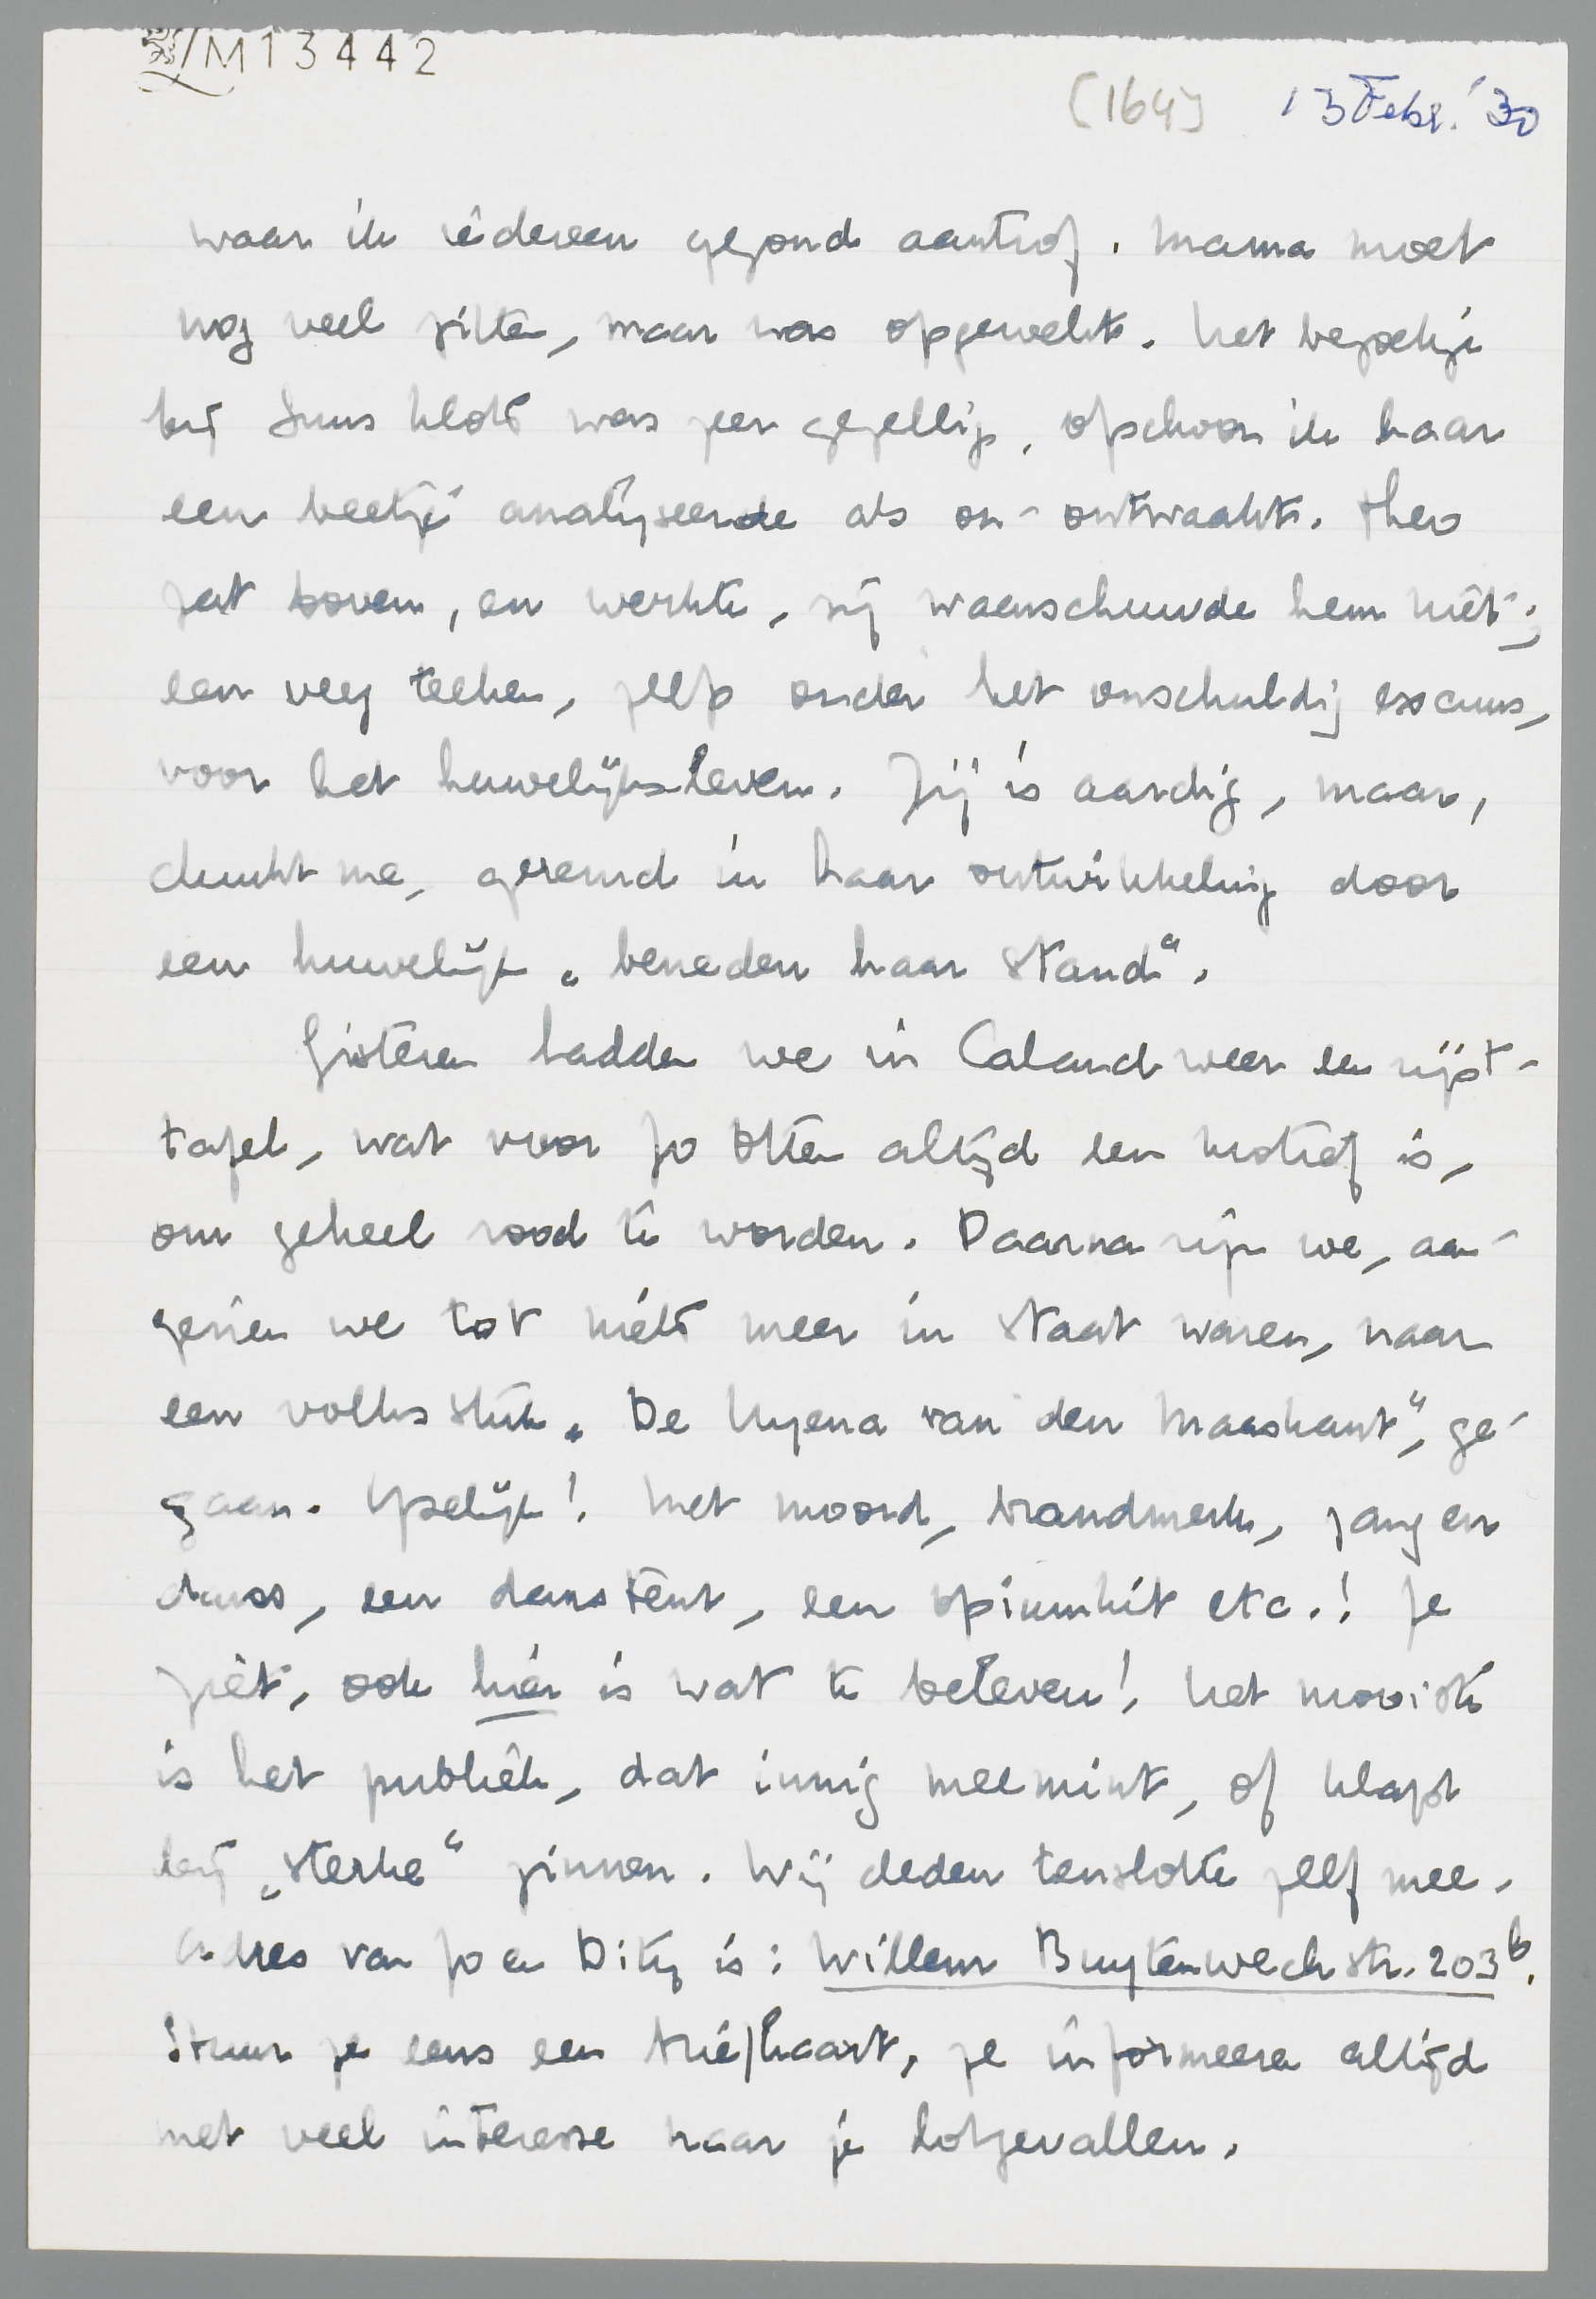 M13442
[164] 13 Febr. '30
waar ik iedereen gezond aantrof. Mama moet
nog veel zitten, maar was opgewekt. Het bezoekje
bij Suus Klott was zeer gezellig, ofschoon ik haar
een beetje analyseerde als on-ontwaakt. Theo
zat boven, en werkte, zij waarschuwde hem niet;
een veeg teeken, zelfs onder het onschuldig excuus,
voor het huwelijksleven. Zij is aardig, maar,
dunkt me, geremd in haar ontwikkeling door
een huwelijk „beneden haar stand".
Gisteren hadden we in Caland weer een rijst-
tafel, wat voor Jo Otten altijd een motief is,
om geheel rood te worden. Daarna zijn we, aan-
gezien we tot niets meer in staat waren, naar
een volksstuk „De Hyena van den Maaskant", ge-
gaan. IJselijk! Met moord, brandmerk, zang en
dans, een danstent, een opiumkit etc.! Je
ziet, ook hier is wat te beleven! Het mooiste
is het publiek, dat innig meemint, of klapt
bij „sterke" zinnen. Wij deden tenslotte zelf mee.
Adres van Jo en Diky is: Willem Buytenwechstr. 203b.
Stuur ze eens een briefkaart, ze informeeren altijd
met veel interesse naar je lotgevallen.